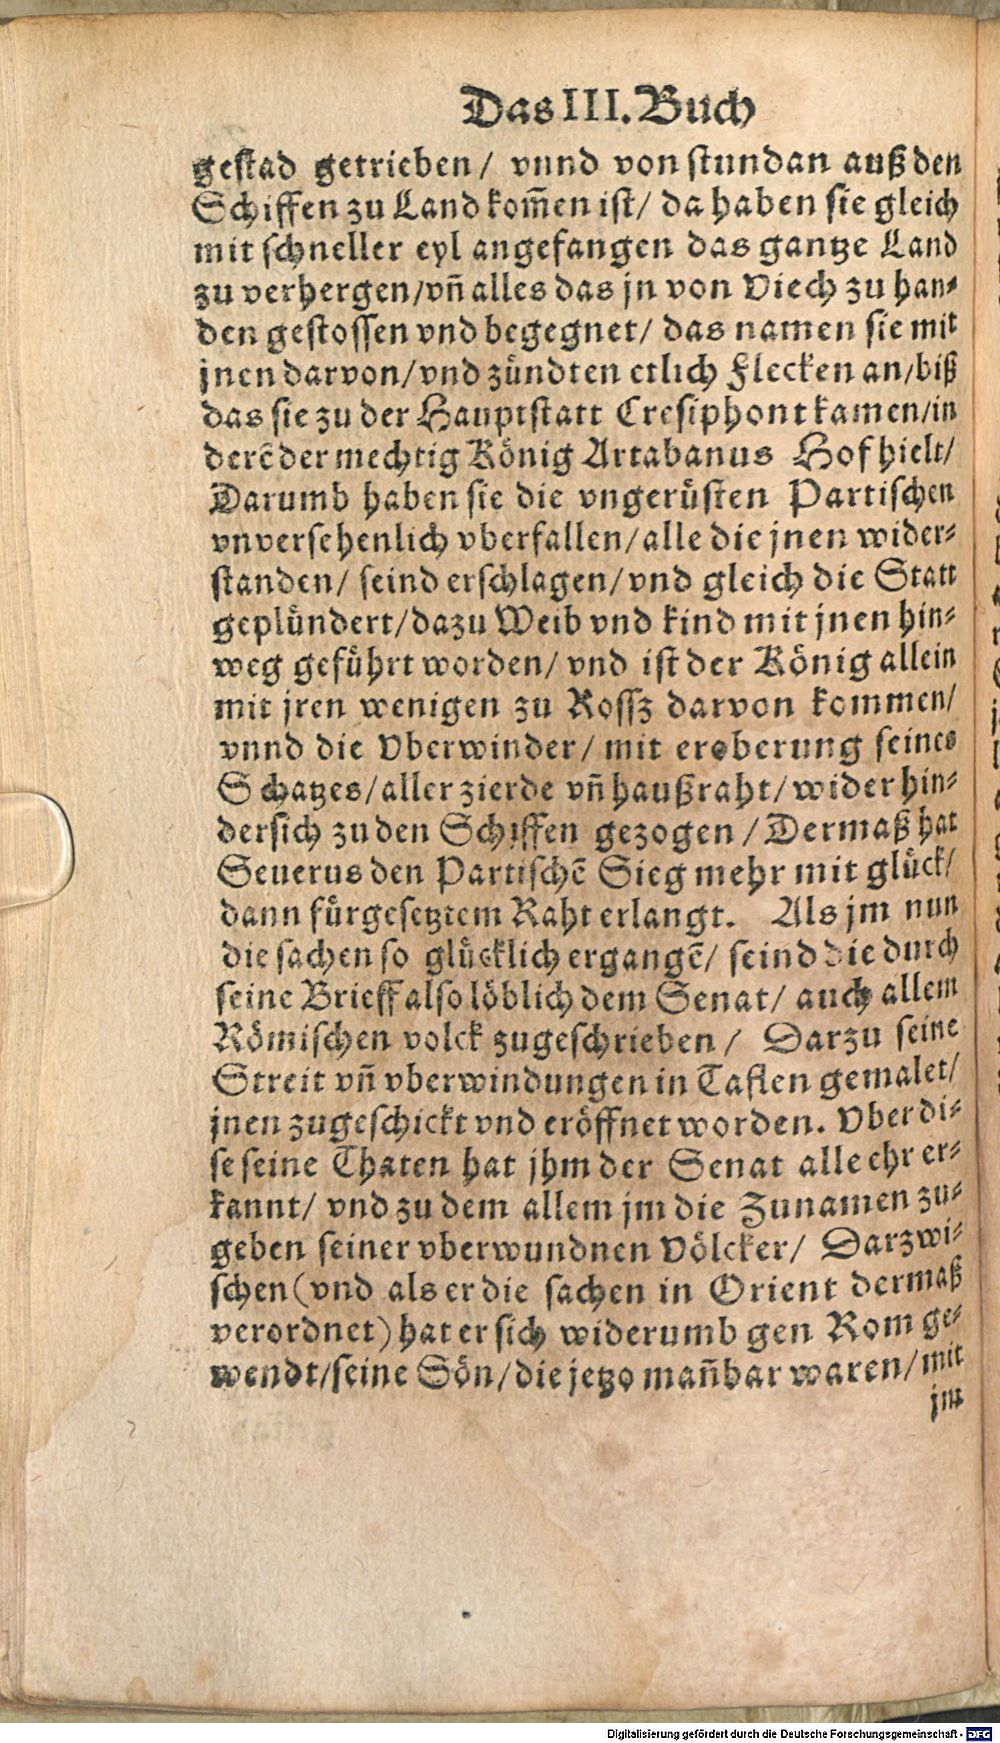 Das III. Buch
gestad getrieben/ vnnd von stundan auß den
Schiffen zu Land kom̃en ist/ da haben sie gleich
mit schneller eyl angefangen das gantze Land
zu verhergen/vñ alles das jn von Viech zu han⸗
den gestossen vnd begegnet/ das namen sie mit
jnen darvon/vnd zündten etlich Flecken an/biß
das sie zu der Hauptstatt Cresiphont kamen/in
derẽ der mechtig König Artabanus Hof hielt/
Darumb haben sie die vngerüsten Partischen
vnversehenlich vberfallen/alle die jnen wider⸗
standen/ seind erschlagen/vnd gleich die Statt
geplündert/dazu Weib vnd kind mit jnen hin⸗
weg geführt worden/ vnd ist der König allein
mit jren wenigen zu Rossz darvon kommen/
vnnd die Vberwinder/ mit eroberung seines
Schatzes/aller zierde vñ haußraht/wider hin⸗
dersich zu den Schiffen gezogen/Dermaß hat
Seuerus den Partischẽ Sieg mehr mit glück/
dann fürgesetztem Raht erlangt. Als jm nun
die sachen so glücklich ergangẽ/ seind die durch
seine Brieff also löblich dem Senat/ auch allem
Römischen volck zugeschrieben/ Darzu seine
Streit vñ vberwindungen in Taflen gemalet/
jnen zugeschickt vnd eröffnet worden. Vber di⸗
se seine Thaten hat jhm der Senat alle ehr er⸗
kannt/ vnd zu dem allem jm die Zunamen zu⸗
geben seiner vberwundnen Völcker/ Darzwi⸗
schen (vnd als er die sachen in Orient dermaß
verordnet) hat er sich widerumb gen Rom ge⸗
wendt/seine Sön/die jetzo mañbar waren/mit
jm
Digitalisierung gefördert durch die Deutsche Forschungsgemeinschaft - DFG